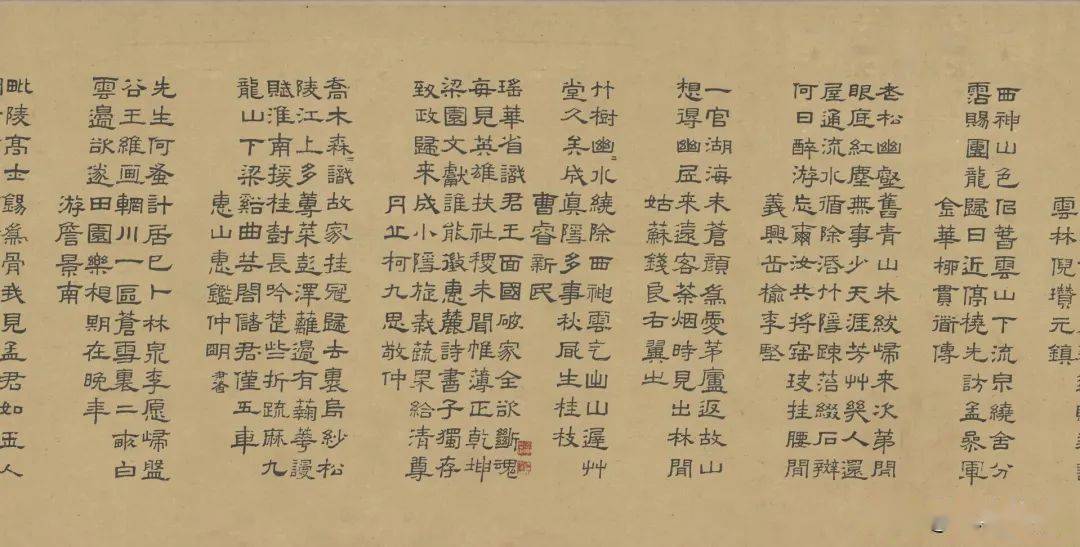 雲林倪瓚元鎮
西神山色侶昔雲山下流泉繞舍分
霑賜團龍歸日近停橈先訪孟參軍
金華柳貫道傳
老松幽壑舊青山朱紱歸來次第閒
眼底紅塵無事少天涯芳艸幾人還
屋通流水循除活竹隱疎落綴石辮
何日醉游忘爾汝共將窊玻挂腰間
義興岳榆李堅
一官湖海未蒼顏為愛茅廬返故山
想得幽居來遠客茶烟時見出林間
姑蘇錢良右翼之
竹樹幽〻水繞除西神雲气出山遲艸
堂久矣成真隱多事秋風生桂枝
曹睿新民
瑤華省識君王面國破家全欲斷魂
每見英雄扶社稷未聞帷薄正乾坤
梁園文獻誰能徵惠麓詩書子獨存
致政歸來成小隱旋栽蔬果給清尊
丹丘柯九思敬仲
喬木森〻識故家挂冠歸去裹烏紗松
陵江上多蓴菜彭澤籬邊有菊華謾
賦淮南援桂封長吟楚些折疏麻九
龍山下梁谿曲共閣儲君僅五車
惠山惠鑑仲明
先生何蚤計居已卜林泉李愿歸盤
谷王維画輞川一區蒼雪裏二畝白
雲邊欲遂田園樂相期在晚年
游詹景南
毗陵高士錫為骨我見孟君如玉人